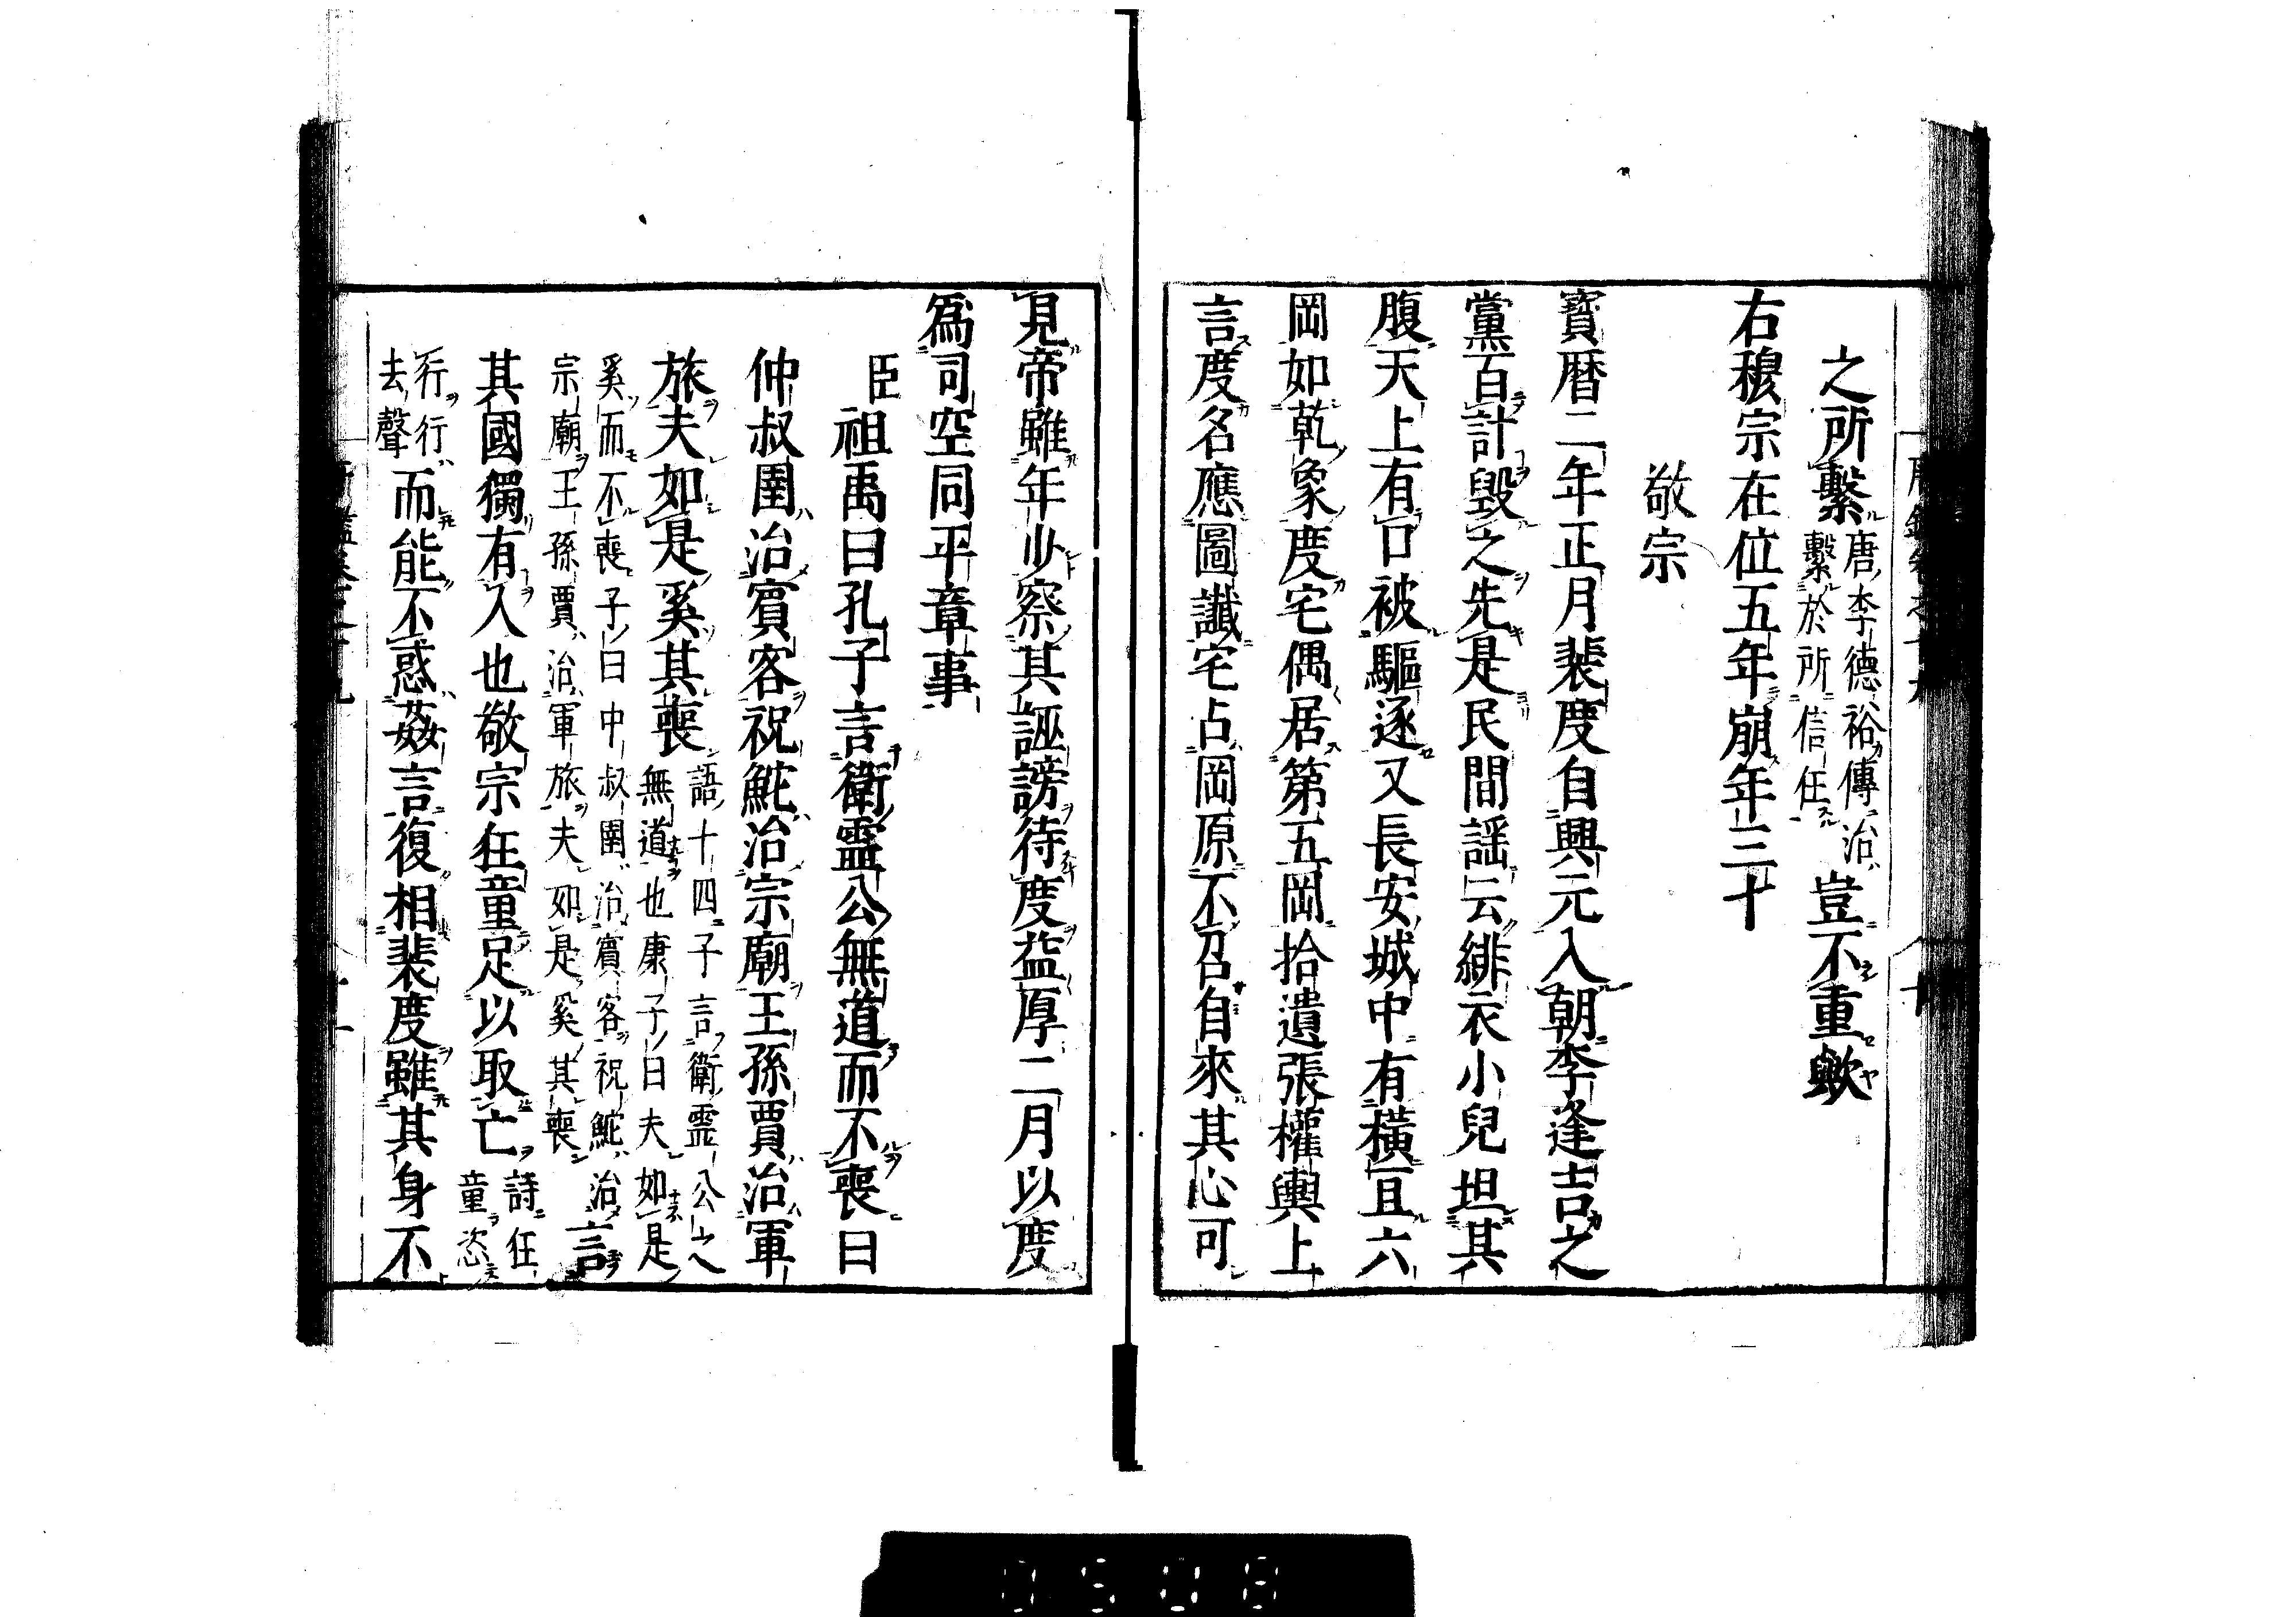 之所繫唐李德裕傳治繫於所信任豈不重歟
右穆宗在位五年崩年三十
敬宗
寳曆二年正月裴度自興元入朝李逢吉之
黨百計毀之先是民間謡云緋衣小兒坦其
腹天上有口被驅逐又長安城中有横亘六
岡如乾象度宅偶居第五岡拾遺張權輿上
言度名應圖讖宅占岡原不召自來其心可
見帝雖年少察其誣謗待度益厚二月以度
爲司空同平章事
臣祖禹曰孔子言衛靈公無道而不喪曰
仲叔圉治賔客祝鮀治宗廟王孫賈治軍
旅夫如是奚其喪語十四子言衛靈公之無道也康子曰夫如是
奚而不喪子曰中叔圉治賔客祝鮀治宗廟王孫賈治軍旅夫如是奚其喪言
其國獨有人也敬宗狂童足以取亡詩狂童恣
行行去聲而能不惑姦言復相裴度雖其身不